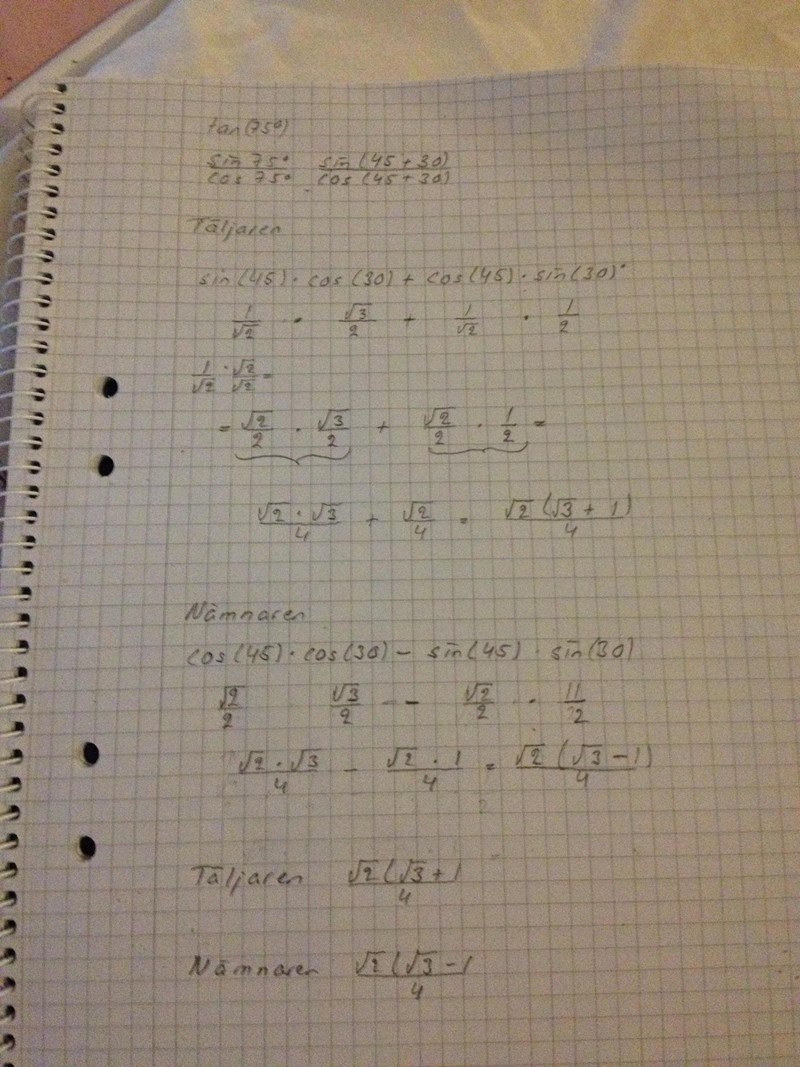 tan(75°)
sin 75° / cos 75° sin(45+30) / cos(45+30)
Täljaren
sin(45)·cos(30)+cos(45)·sin(30)
1/√2 · √3/2 + 1/√2 · 1/2
1/√2 · √2/√2 =
= √2/2 · √3/2 + √2/2 · 1/2 =
√2·√3/4 + √2/4 = √2(√3+1)/4
Nämnaren
cos(45)·cos(30)-sin(45)·sin(30)
√2/2 √3/2 -- √2/2 · 11/2
√2·√3/4 - √2·1/4 = √2(√3-1)/4
Täljaren √2(√3+1/4
Nämnaren √2(√3-1/4